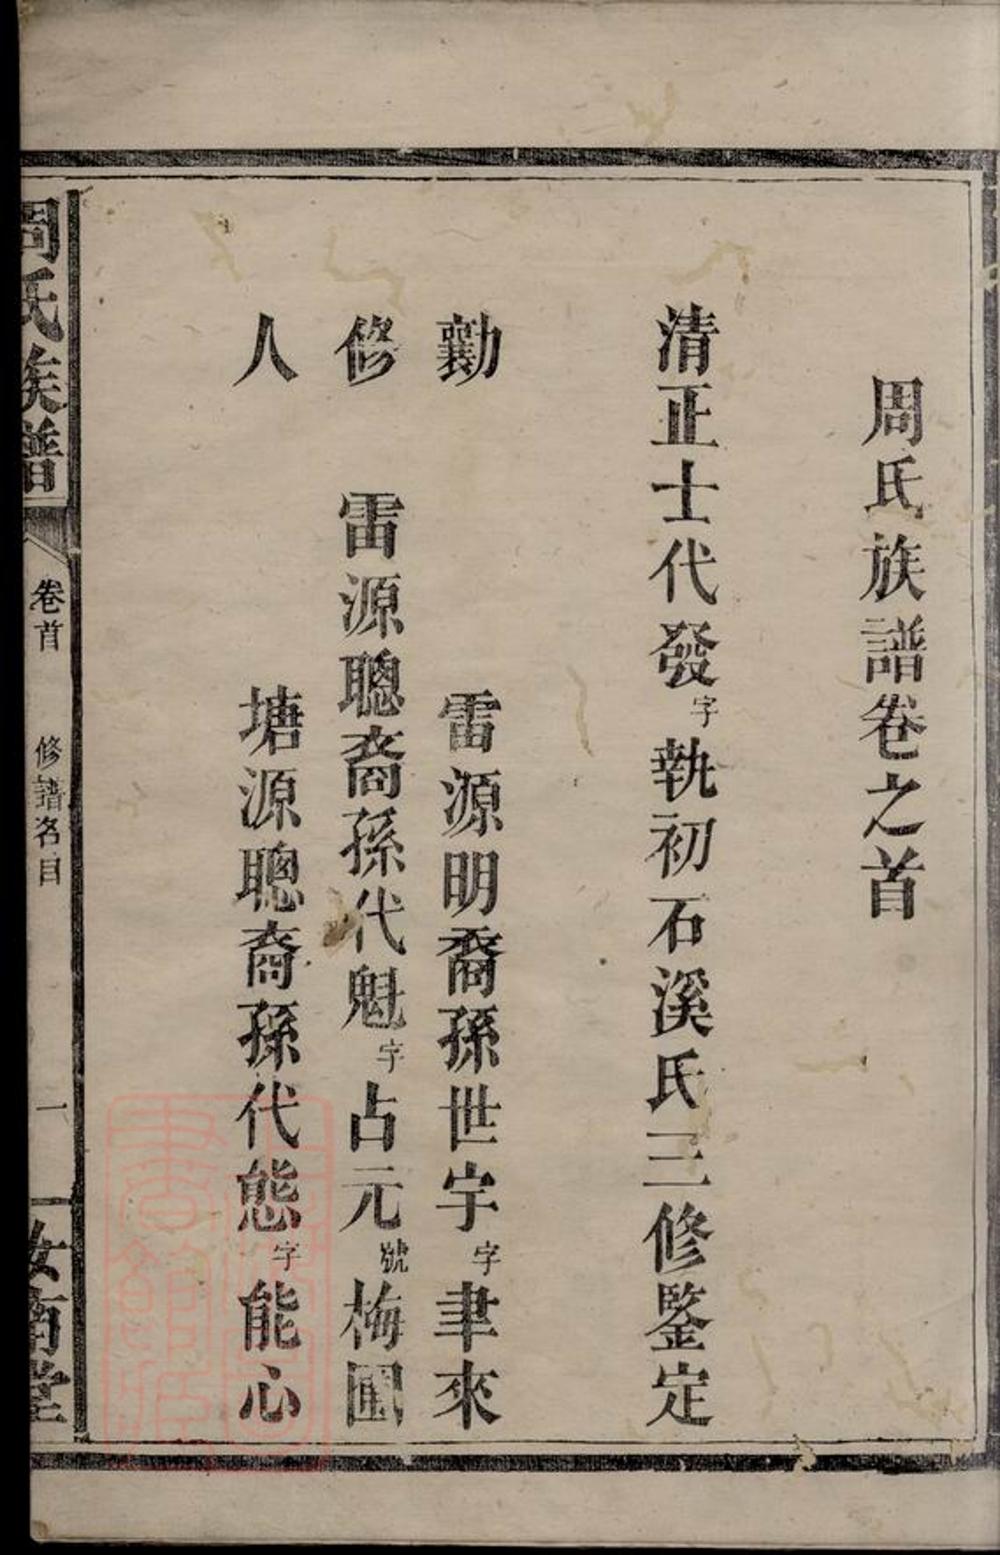 周氏族譜卷之首
清正士代發字執初石溪氏三修鑒定
勷 雷源明裔孫世宇字聿來
修 雷源聰裔孫代魁字占元號梅圃
人 塘源聰裔孫代態字能心
周氏族譜 卷首 修譜名目 一 汝南堂